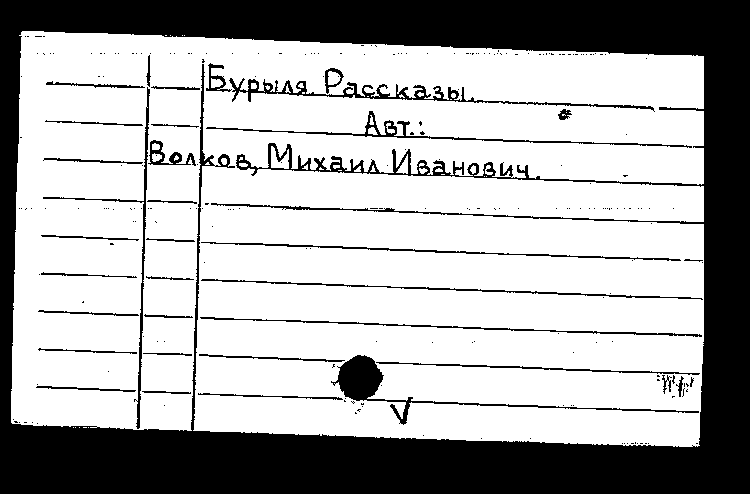 Бурыля. Рассказы.
Авт.:
Волков, Михаил Иванович.